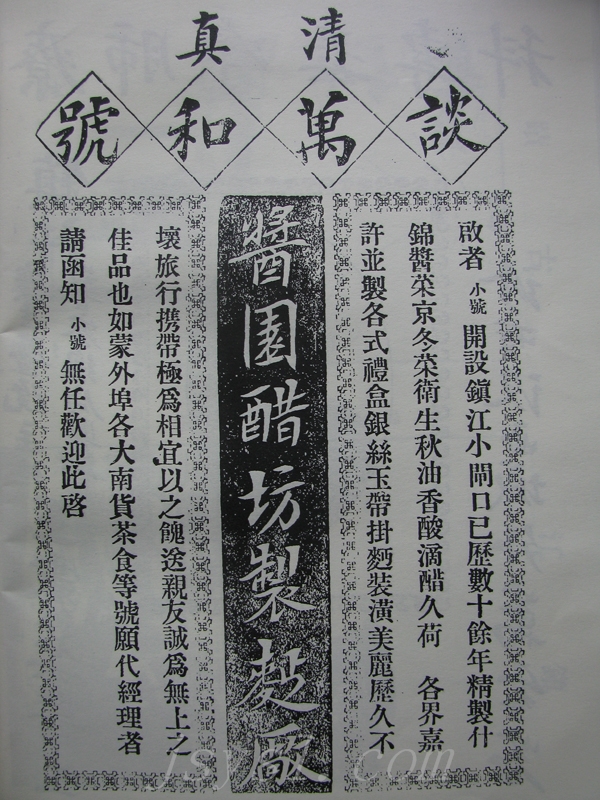 清真
談萬和號
啟者小號開設鎮江小閘口已歷數十餘年精製什
錦醬菜京冬菜衛生秋油香酸滴醋久荷 各界嘉
許並製各式禮盒銀絲玉帶掛麪裝潢美麗歷久不
醬園醋坊製麪廠
壞旅行携帶極為相宜以之餽送親友誠為無上之
佳品也如蒙外埠各大南貨茶食等號願代經理者
請函知小號無任歡迎此啓